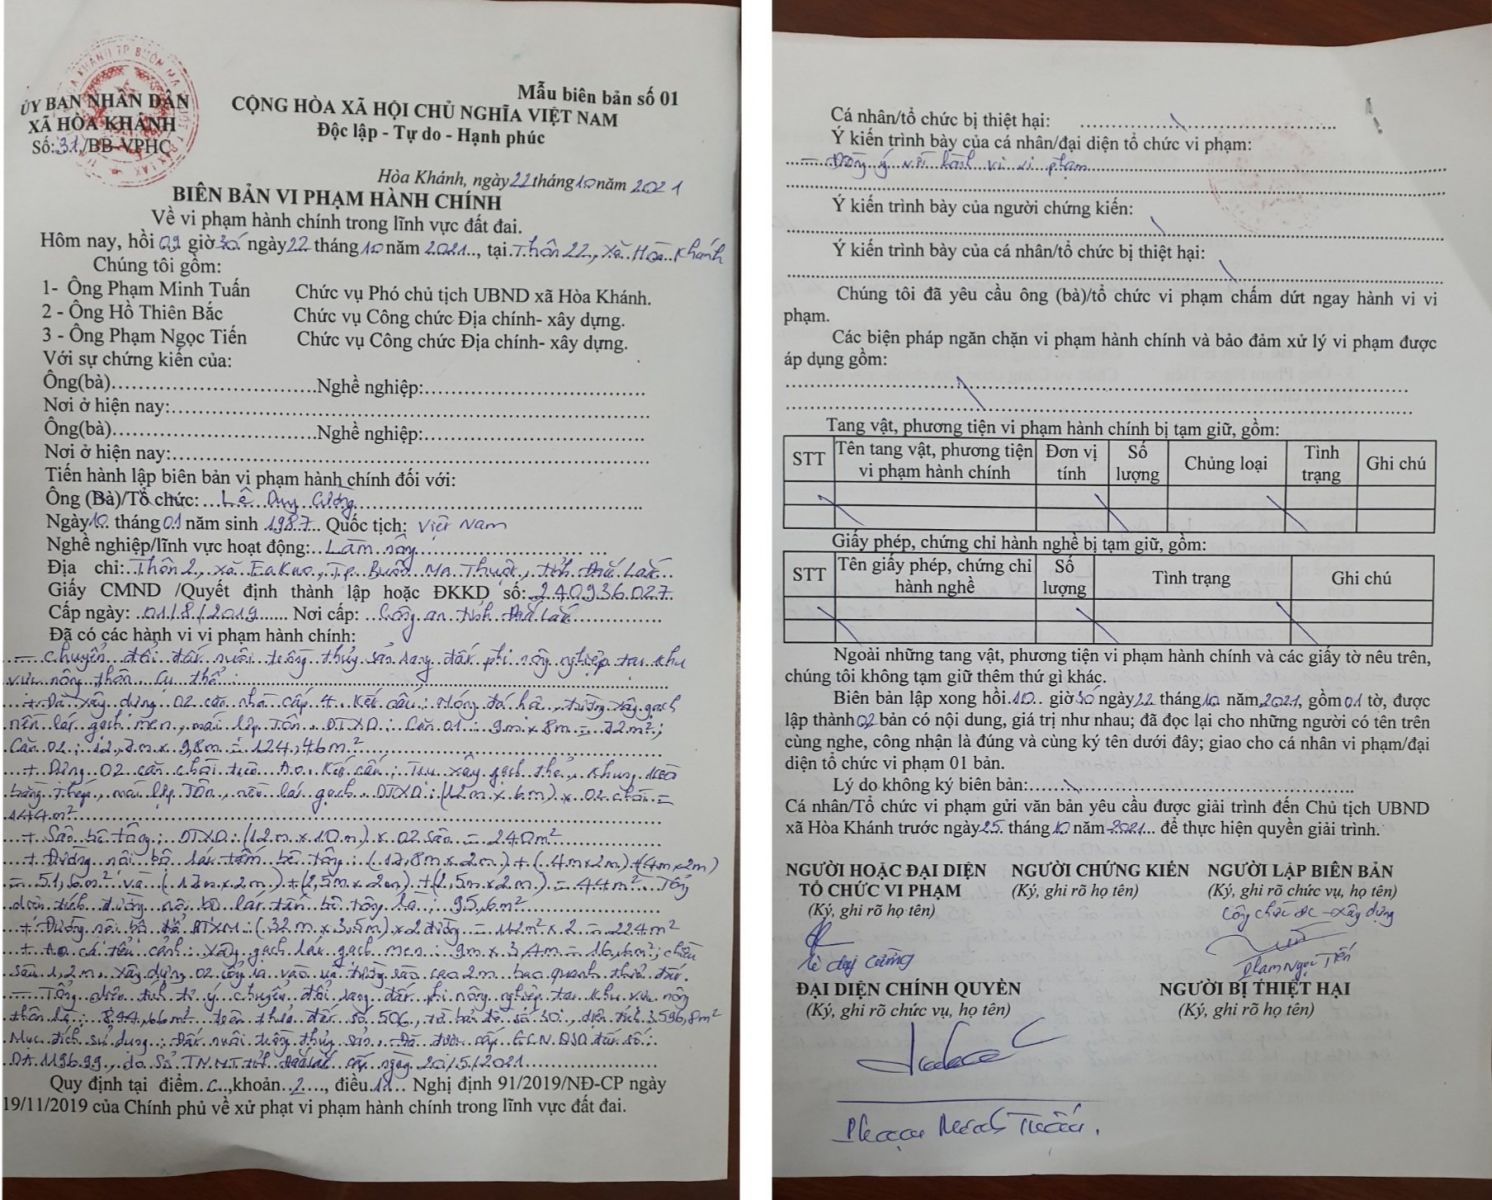 Mẫu biên bản số 01
ỦY BAN NHÂN DÂN
XÃ HÒA KHÁNH
Số:31./BB-VPHC
CỘNG HÒA XÃ HỘI CHỦ NGHĨA VIỆT NAM
Độc lập - Tự do - Hạnh phúc
Hòa Khánh, ngày 22 tháng 10 năm 2021
BIÊN BẢN VI PHẠM HÀNH CHÍNH
Về vi phạm hành chính trong lĩnh vực đất đai.
Hôm nay, hồi 09 giờ 30 ngày 22 tháng 10 năm 2021.., tại Thôn 22, xã Hòa Khánh
Chúng tôi gồm:
1- Ông Phạm Minh Tuấn Chức vụ Phó chủ tịch UBND xã Hòa Khánh.
2 - Ông Hồ Thiên Bắc Chức vụ Công chức Địa chính- xây dựng.
3 - Ông Phạm Ngọc Tiến Chức vụ Công chức Địa chính- xây dựng.
Với sự chứng kiến của:
Ông(bà)..............................Nghề nghiệp:..............................
Nơi ở hiện nay:..............................
Ông(bà)..............................Nghề nghiệp:..............................
Nơi ở hiện nay:..............................
Tiến hành lập biên bản vi phạm hành chính đối với:
Ông (Bà)/Tổ chức: Lê Duy Cường
Ngày 10 tháng 01 năm sinh 1987 Quốc tịch: Việt Nam
Nghề nghiệp/lĩnh vực hoạt động: Làm nông
Địa chỉ: Thôn 2, xã EaKao, Tp. Buôn Ma Thuột, tỉnh Đắk Lắk
Giấy CMND /Quyết định thành lập hoặc ĐKKD số: 240936027
Cấp ngày: 01/8/2019 Nơi cấp: Công an tỉnh Đắk Lắk
Đã có các hành vi vi phạm hành chính:
- Chuyển đổi đất nuôi trồng thủy sản sang đất phi nông nghiệp tại khu
vực nông thôn. Cụ thể:
+ Đã xây dựng 02 căn nhà cấp 4. Kết cấu: Móng đá hộc, tường xây gạch
nền lát gạch men, mái lợp Tôn. DTXD: Căn 01: 9m x 8m = 72m²;
Căn 02: 12,7m x 9,8m = 124,46m²
+ Dựng 02 căn chòi trên Ao. Kết cấu: Trụ xây gạch thẻ, khung
bằng thép, mái lợp Tôn, nền lát gạch. DTXD: (12m x 6m) x 02 chòi =
144m²
+ Sân bê tông: DTXD: (12m x 10m) x 02 sân = 240m²
+ Đường nội bộ lát tấm bê tông: (17,8m x 2m) + (4m x 2m) + (4m x 2m)
= 51,6m² và (17m x 2m) + (2,5m x 2m) + (2,5m x 2m) = 44m². Tổng
diện tích đường nội bộ lát tấm bê tông là: 95,6m²
+ Đường nội bộ đổ BTXM: (32m x 3,5m) x 2 đường = 112m² x 2 = 224m²
+ Ao cá tiểu cảnh: Xây gạch lát gạch men: 9m x 3,4m = 16,6m²; chiều
sâu 1,2m. Xây dựng 02 cổng ra vào và tường rào cao 2m bao quanh thửa đất.
- Tổng diện tích tự ý chuyển đổi sang đất phi nông nghiệp tại khu vực nông
thôn là: 894,66m² trên thửa đất số 506, tờ bản đồ số 30, diện tích 3.596,8m²
Mục đích sử dụng: Đất nuôi trồng thủy sản. Đã được cấp GCN QSD đất số:
DA 119699, do Sở TN.MT tỉnh Đắk Lắk cấp ngày 20/5/2021
Quy định tại điểm C, khoản 2, điều 11 Nghị định 91/2019/NĐ-CP ngày
19/11/2019 của Chính phủ về xử phạt vi phạm hành chính trong lĩnh vực đất đai.
Cá nhân/tổ chức bị thiệt hại: ..............................
Ý kiến trình bày của cá nhân/đại diện tổ chức vi phạm:
- Đồng ý với hành vi vi phạm
Ý kiến trình bày của người chứng kiến:
Ý kiến trình bày của cá nhân/tổ chức bị thiệt hại:
Chúng tôi đã yêu cầu ông (bà)/tổ chức vi phạm chấm dứt ngay hành vi vi
phạm.
Các biện pháp ngăn chặn vi phạm hành chính và bảo đảm xử lý vi phạm được
áp dụng gồm:
Tang vật, phương tiện vi phạm hành chính bị tạm giữ, gồm:
STT Tên tang vật, phương tiện vi phạm hành chính Đơn vị tính Số lượng Chủng loại Tình trạng Ghi chú
Giấy phép, chứng chỉ hành nghề bị tạm giữ, gồm:
STT Tên giấy phép, chứng chỉ hành nghề Số lượng Tình trạng Ghi chú
Ngoài những tang vật, phương tiện vi phạm hành chính và các giấy tờ nêu trên,
chúng tôi không tạm giữ thêm thứ gì khác.
Biên bản lập xong hồi 10 giờ 30 ngày 22 tháng 10 năm 2021, gồm 01 tờ, được
lập thành 02 bản có nội dung, giá trị như nhau; đã đọc lại cho những người có tên trên
cùng nghe, công nhận là đúng và cùng ký tên dưới đây; giao cho cá nhân vi phạm/đại
diện tổ chức vi phạm 01 bản.
Lý do không ký biên bản:..............................
Cá nhân/Tổ chức vi phạm gửi văn bản yêu cầu được giải trình đến Chủ tịch UBND
xã Hòa Khánh trước ngày 25 tháng 10 năm 2021 để thực hiện quyền giải trình.
NGƯỜI HOẶC ĐẠI DIỆN NGƯỜI CHỨNG KIẾN NGƯỜI LẬP BIÊN BẢN
TỔ CHỨC VI PHẠM (Ký, ghi rõ họ tên) (Ký, ghi rõ chức vụ, họ tên)
(Ký, ghi rõ họ tên) Công chức ĐC - Xây dựng
Lê Duy Cường Phạm Ngọc Tiến
ĐẠI DIỆN CHÍNH QUYỀN NGƯỜI BỊ THIỆT HẠI
(Ký, ghi rõ chức vụ, họ tên) (Ký, ghi rõ họ tên)
Phạm Minh Tuấn.